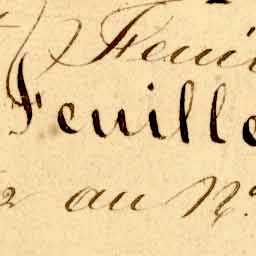 Feui
Feuille
au N.º